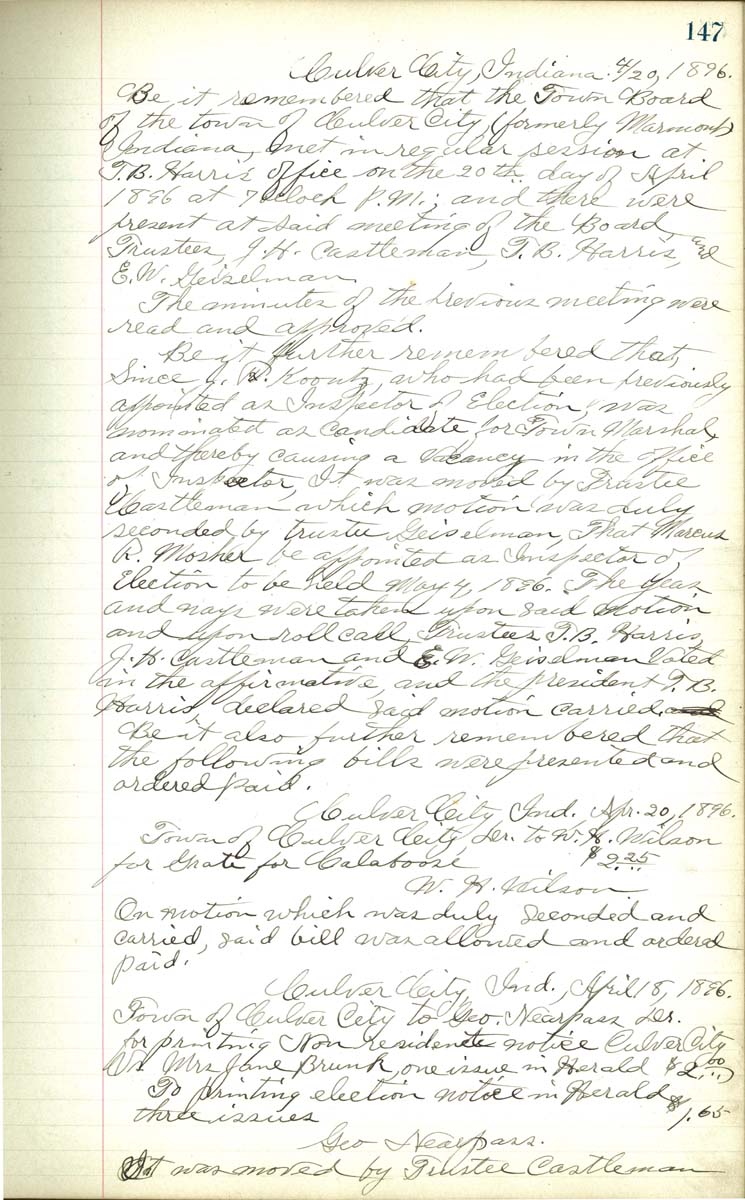 147
Culver City, Indiana. 4/20, 1896.
Be it remembered that the Town Board
of the town of Culver City, (formerly Marmont)
Indiana, met in regular session at
T.B. Harris office on the 20th day of April
1896 at 7 oclock P.M.; and there were
present at said meeting of the Board
Trustees, J.H. Castleman, T.B. Harris, and
E.W. Geiselman.
The minutes of the previous meeting were
read and approved.
Be it further remembered that,
Since J. R. Koontz, who had been previously
appointed as Inspector of Election, was
nominated as candidate for Town Marshal,
and thereby causing a vacancy in the office
of Inspector, It was moved by Trustee
Castleman which motion was duly
seconded by trustee Geiselman, That Marcus
R. Mosher be appointed as Inspector of
Election to be held May 4, 1896. The yeas
and nays were taken upon said motion
and upon roll call, Trustees T.B. Harris,
J.H. Castleman and E.W. Geiselman Voted
in the affirmative, and the president T.B.
Harris, declared said motion carried.
Be it also further remembered that
the following bills were presented and
ordered paid.
Culver City Ind. Apr. 20, 1896.
Town of Culver City Dr. to W.H. Wilson
for Grate for Calaboose $2.25
W. H. Wilson
On motion which was duly seconded and
carried, said bill was allowed and ordered
paid.
Culver City, Ind., April 18, 1896.
Town of Culver City to Geo. Nearpass Dr.
for printing Non resident notice Culver City
Vs Mrs Jane Brunk, one issue in Herald $2.00
To printing election notice in Herald
three issues $1.65
Geo Nearpass.
It was moved by Trustee Castleman